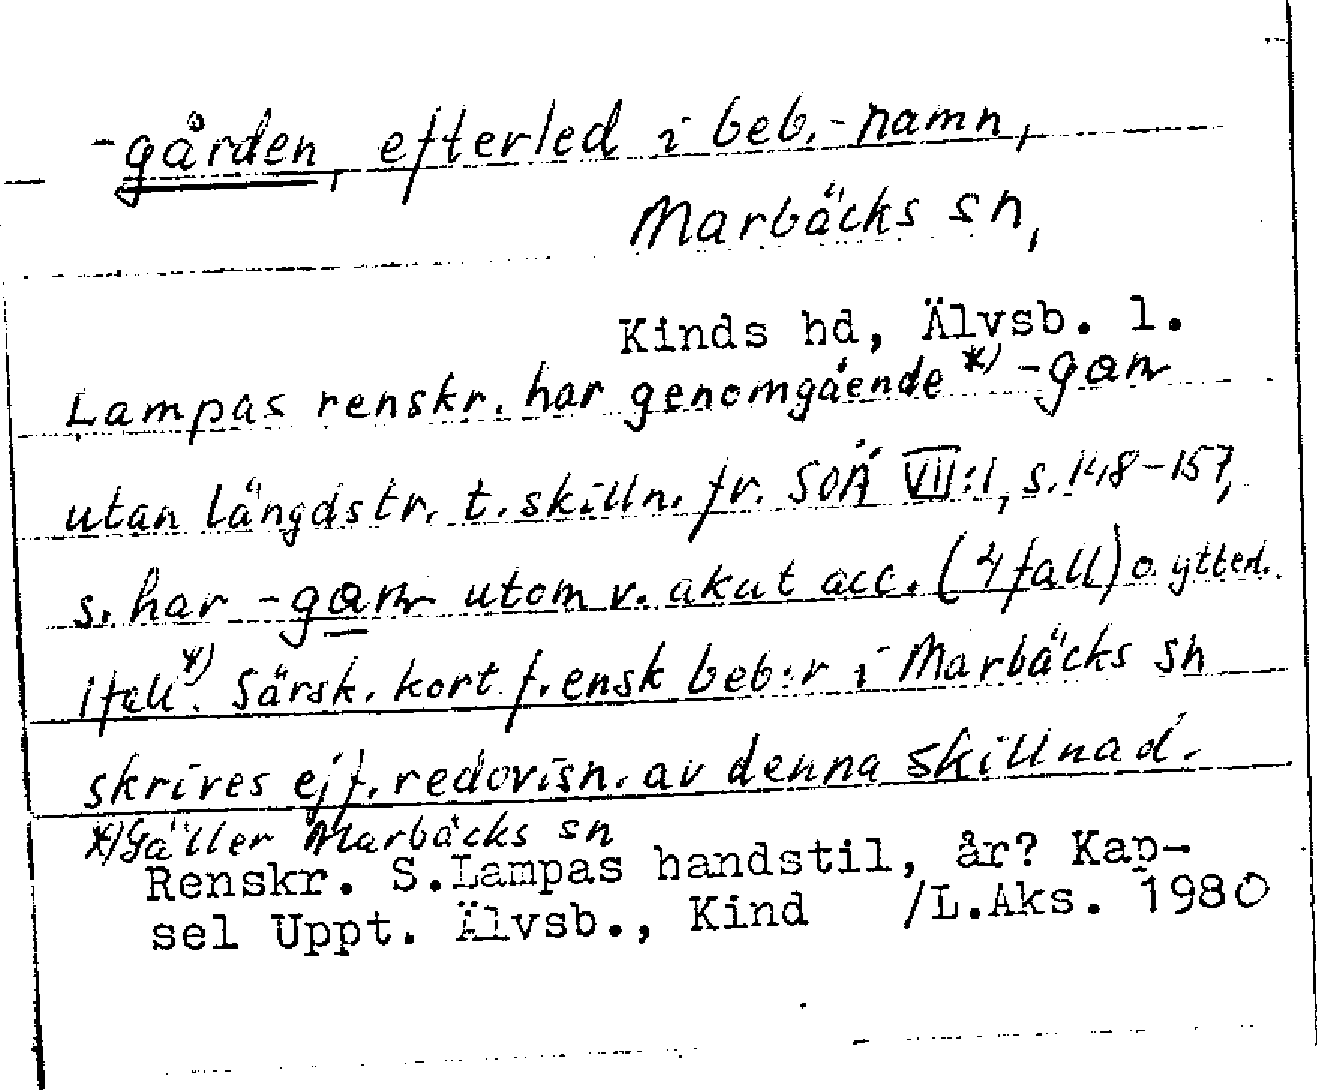 -gården, efterled i beb.-namn,
Marbäcks sn,
Kinds hd, Älvsb. l.
Lampas renskr. har genomgående *) -gam
utan längdstr. t. skilln. fr. SOÄ VII:1, s. 148-157,
s. har -gam utom v. akut acc. (4 fall) o. ytterl.
1 fall *). Särsk. kort f. ensk beb:r i Marbäcks sn
skrives ej f. redovisn. av denna skillnad.
*) Gäller Marbäcks sn
Renskr. S.Lampas handstil, år? Kap-
sel Uppt. Älvsb., Kind /L.Aks. 1980